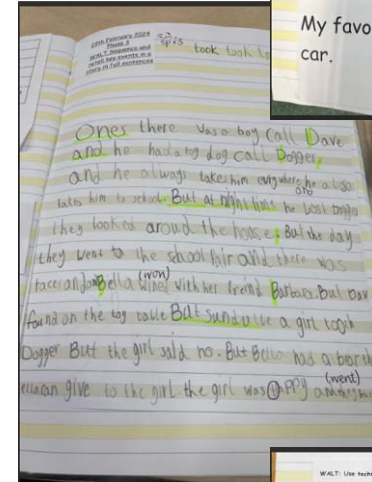 My favo
car.
28th February 2024
Phase 3
WALT Sequence and
retell key events in a
story in full sentences
took took to
Ones there was a boy call Dave
and he had a toy dog call Dogger,
and he always takes him evrywhere he also
and
takes him to school. But at night time he lost Dogger
they looked aroud the house. But the day
they went to the school fair and there was
(won)
races and Bella wined with her freind Barbara. But Dav
found on the toy table But a girl
Dogger Butt the girl said no. But Bella had a
can give to the girl the girl was appy and
(went)
WALT: Use tech